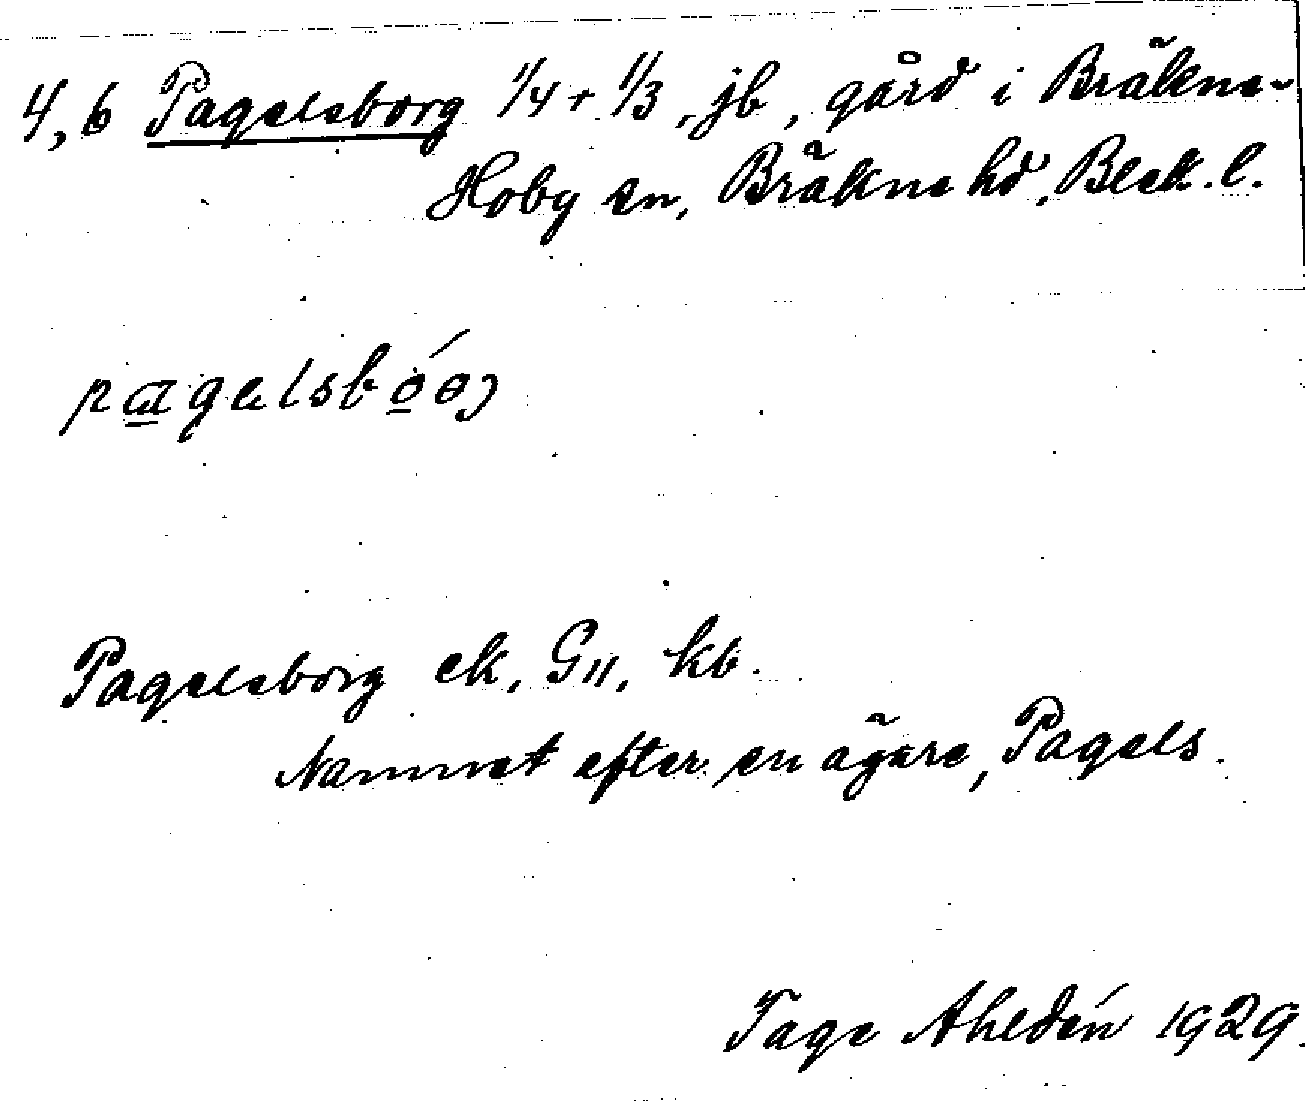 4, 6 Pagelsborg 1/4 + 1/3, jb, gård i Bräkne-
Hoby sn, Bräkne hd, Blek. l.
Pagelsborg ek, G11, kb.
Namnet efter en ägare, Pagels.
Tage Ahldén 1929.